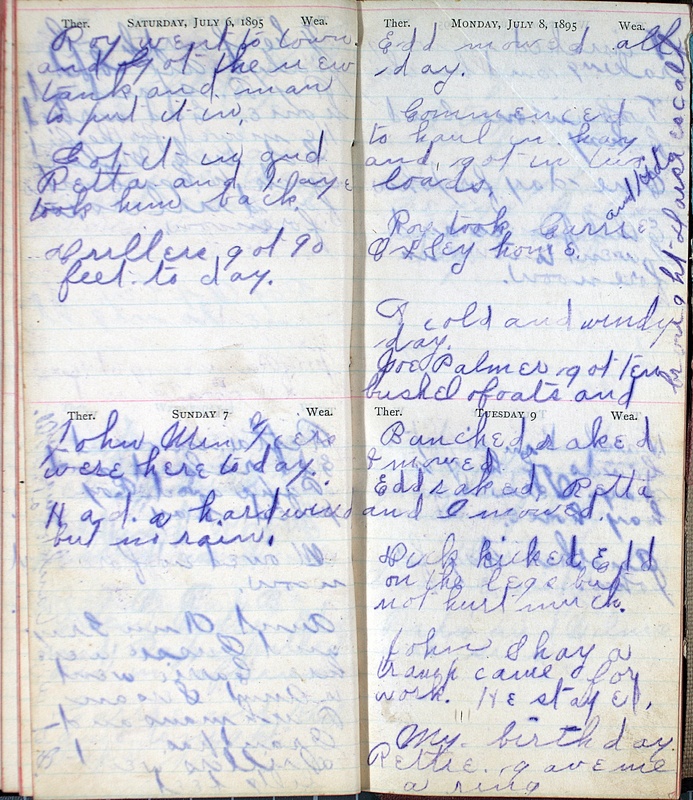 Ther. SATURDAY, JULY 6, 1895 Wea.
Roy went to town
and got the new
tank and man
to put it in.
Got it in and
Retta and I
took him back
Drillers got 90
feet to day.
Ther. SUNDAY 7 Wea.
John
were here to day.
Had a hard wind
but no rain.
Ther. MONDAY, JULY 8, 1895 Wea.
Edd mowed all
day.
Commenced
to haul in hay
and got in two
loads.
Roy took Carrie
home.
A cold and windy
day.
Joe Palmer got ten
bushel of oats and
brought
Ther. TUESDAY 9 Wea.
Bunched raked
& mowed
Edd raked Retta
and I mowed.
Dick kicked Edd
on the legs but
not hurt much.
John Shay a
tramp came for
work. He stayed.
My birthday
gave me
a ring